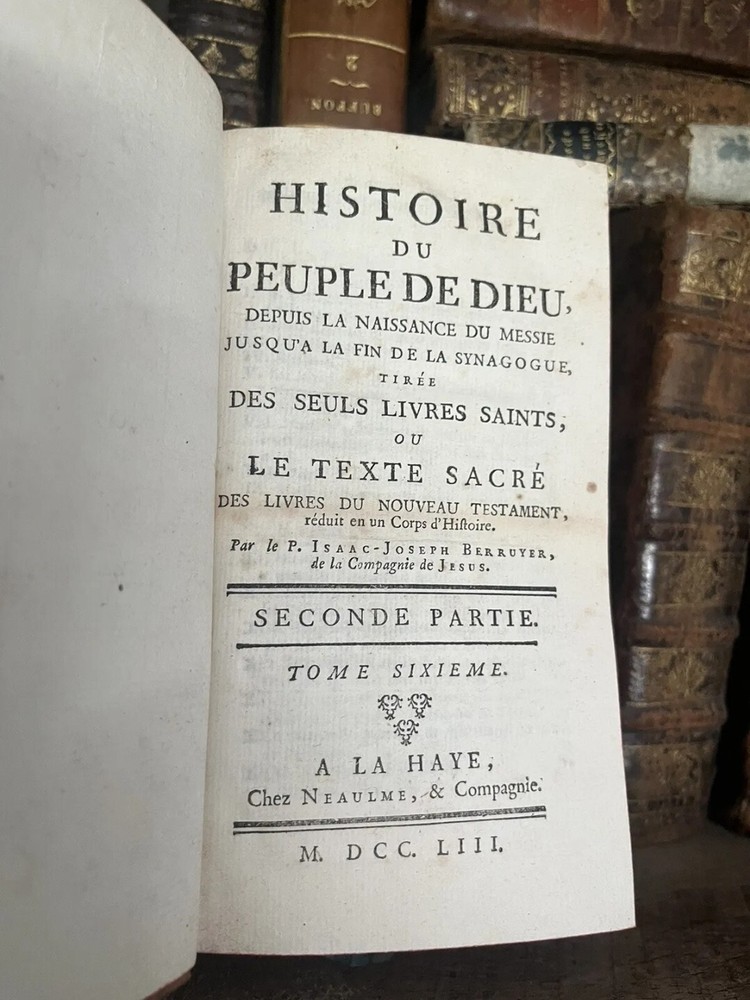 BUFFON.
2
HISTOIRE
DU
PEUPLE DE DIEU,
DEPUIS LA NAISSANCE DU MESSIE
JUSQU'A LA FIN DE LA SYNAGOGUE,
TIRÉE
DES SEULS LIVRES SAINTS;
OU
LE TEXTE SACRÉ
DES LIVRES DU NOUVEAU TESTAMENT,
réduit en un Corps d'Hiſtoire.
Par le P. ISAAC-JOSEPH BERRUYER,
de la Compagnie de JESUS.
SECONDE PARTIE.
TOME SIXIEME.
A LA HAYE,
Chez NEAULME, & Compagnie.
M. DCC. LIII.